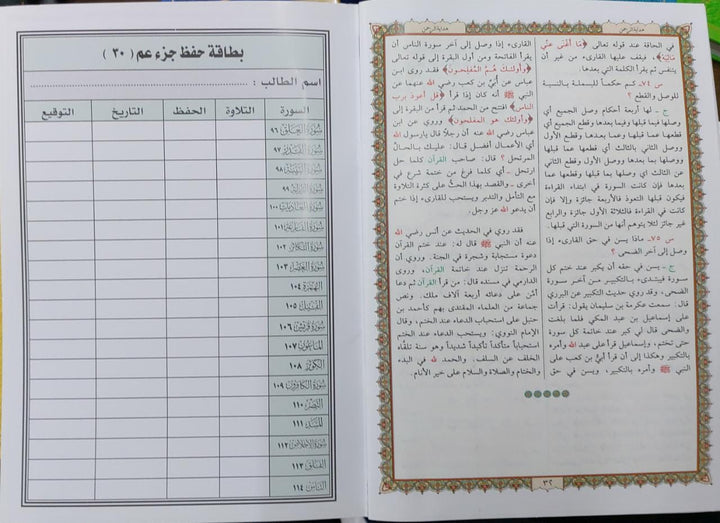 هداية الرحمن
هداية الرحمن
في الحاقة عند قوله تعالى ﴿مَا أَغْنَى عَنِّي
مَالِيَهْ﴾، فيقف عليها القارىء من غير أن
يتنفس ثم يقرأ الكلمة التي بعدها.
س ٧٤ـ كم حكماً للبسملة بالنسبة
للوصل والقطع ؟
ج ـ لها أربعة أحكام وصل الجميع أي
وصلها فيما قبلها وفيما بعدها وقطع الجميع أي
قطعها عما قبلها وعما بعدها وقطع الأول
ووصل الثاني بالثالث أي قطعها عما قبلها
ووصلها بما بعدها ووصل الأول وقطع الثاني
عن الثالث اي وصلها بما قبلها وقطعها عما
بعدها فإن كانت السورة في ابتداء القراءة
فيكون قبلها التعوذ فالأربعة جائزة وإلا فإن
كانت في القراءة فالثلاثة الأول جائزة والرابع
غير جائز لئلا يتوهم أنها من السورة التي قبلها.
س ٧٥ـ ماذا يسن في حق القارىء إذا
وصل إلى آخر الضحى ؟
ج ـ يسن في حقه أن يكبر عند ختم كل
سورة فيبتدىء بالتكبير من آخر سورة
الضحى، وقد روي حديث التكبير عن البزي
قال: سمعت عكرمة بن سليمان يقول: قرأت
على إسماعيل بن عبد المكي فلما بلغت
والضحى قال لي كبر عند خاتمة كل سورة
حتى تختم، وإسماعيل قرأ على عبد الله وأمره
بالتكبير وهكذا إلى أن قرأ أبيُّ بن كعب على
النبي ﷺ وأمره بالتكبير، ويسن في حق
القارىء إذا وصل إلى آخر سورة الناس أن
يقرأ الفاتحة ومن أول البقرة إلى قوله تعالى
﴿وَأُولَئِكَ هُمُ الْمُفْلِحُونَ﴾ فقد روى ابن
عباس عن أبي بن كعب رضي الله عنهما عن
النبي ﷺ أنه كان إذا قرأ ﴿قل أعوذ برب
الناس﴾ افتتح من الحمد ثم قرأ من البقرة إلى
﴿وأولئك هو المفلحون﴾ وروي عن ابن
عباس رضي الله عنه أن رجلاً قال يارسول الله
أي الأعمال أفضل قال: عليك بالحال
المرتحل ؟ قال: صاحب القرآن كلما حل
ارتحل ـ أي كلما فرغ من ختمة شرع في
أخرى ـ والقصد بهذا الحث على كثرة التلاوة
مع التأمل والتدبر ويستحب للقارىء إذا ختم
أن يدعو الله عز وجل.
فقد روي في الحديث عن أنس رضي الله
عنه أن النبي ﷺ قال له: عند ختم القرآن
دعوة مستجابة وشجرة في الجنة. وروي أن
الرحمة تنزل عند خاتمة القرآن، وروى
الدارمي في مسنده قال: من قرأ القرآن ثم دعا
أمّن على دعائه أربعة آلاف ملك. ونص
جماعة من العلماء المقتدى بهم كأحمد بن
حنبل على استحباب الدعاء عند الختم، وقال
الإمام النووي: ويستحب الدعاء عند الختم
استحباباً متأكداً تأكيداً شديداً وهو سنة تلقاه
الخلف عن السلف. والحمد لله في البدء
والختام والصلاة والسلام على خير الأنام.
٣٢
بطاقة حفظ جزء عم ( ٣٠ )
اسم الطالب :
السورة التلاوة الحفظ التاريخ التوقيع
سُورَةُ العَلَقِ ٩٦
سُورَةُ القَدْرِ ٩٧
سُورَةُ البَيِّنَةِ ٩٨
سُورَةُ الزَّلْزَلَةِ ٩٩
سُورَةُ العَادِيَاتِ ١٠٠
سُورَةُ القَارِعَةِ ١٠١
سُورَةُ التَّكَاثُرِ ١٠٢
سُورَةُ العَصْرِ ١٠٣
الهُمَزَة ١٠٤
الفِيل ١٠٥
سُورَةُ قُرَيْشٍ ١٠٦
المَاعُون ١٠٧
الكَوْثَر ١٠٨
سُورَةُ الكَافِرُونَ ١٠٩
النَّصْر ١١٠
المَسَد ١١١
سُورَةُ الإِخْلَاصِ ١١٢
الفَلَق ١١٣
النَّاس ١١٤